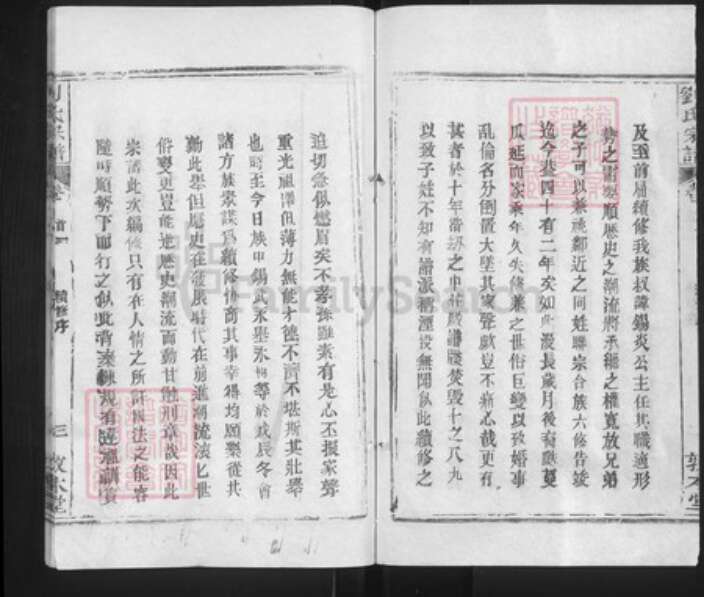 及至前屆續修我族叔諱錫炎公主任其職適形
勢之需要順歷史之潮流將承繼之權寬放兄弟
之子可以兼祧鄰近之同姓聯宗合族六修告竣
迄今巳四十有二年矣如此漫長歲月後裔
瓜延而家乘年久失修兼之世俗巨變以致婚事
亂倫名分倒置大墜其家聲歟豈不痛心哉更有
甚者於十年浩劫之中祖牒譜牒焚毀十之八九
以致子姓不知有譜派稱湮沒無聞似此續修之
迫切急似燃眉矣不孝孫雖素有是心丕振家聲
重光祖澤但薄力無能才德不濟不堪斯其壯舉
也時至今日族中錫武永舉永 等於戊辰冬會
諸方族眾謀為續修協商其事幸得均願樂從共
勷此舉但歷史在發展時代在前進潮流滾匕世
俗變更豈能逆歷史潮流而動甘觸刑章哉因此
宗譜此次編修只有在人情之所許國法之能容
隨時順勢下而行之似此背 規有違 訓實
劉氏宗譜 卷首 續修序 三 敦本堂
劉氏宗譜 卷 敦本堂
FamilySearch